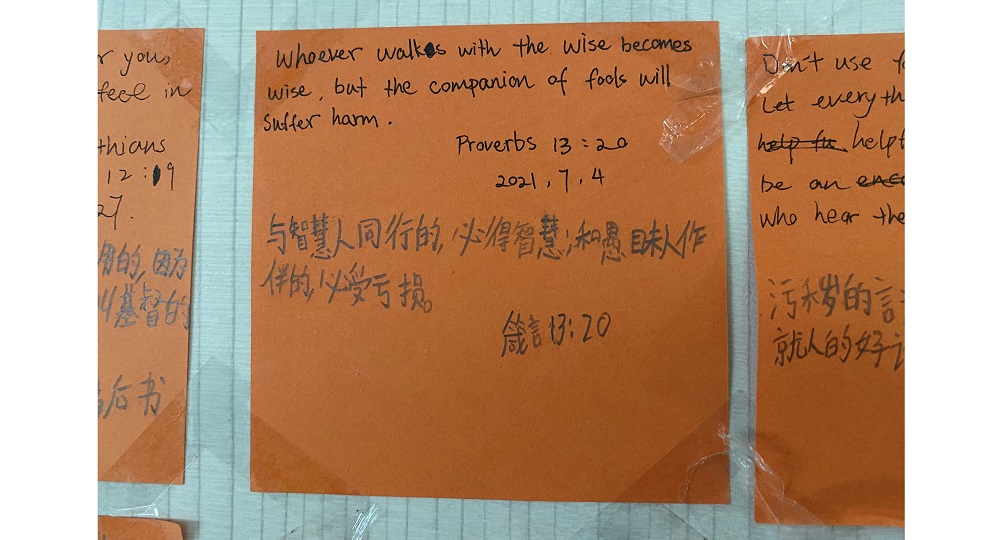 r you,
feel in
thians
12:19
27.
的,因为
基督的
后书
Whoever walks with the wise becomes
wise, but the companion of fools will
suffer harm.
Proverbs 13:20
2021,7,4
与智慧人同行的,必得智慧;和愚昧人作
伴的,必受亏损。
箴言13:20
Don't use f
Let everyth
help fu helpf
be an enc
who hear the
污秽的言
就人的好